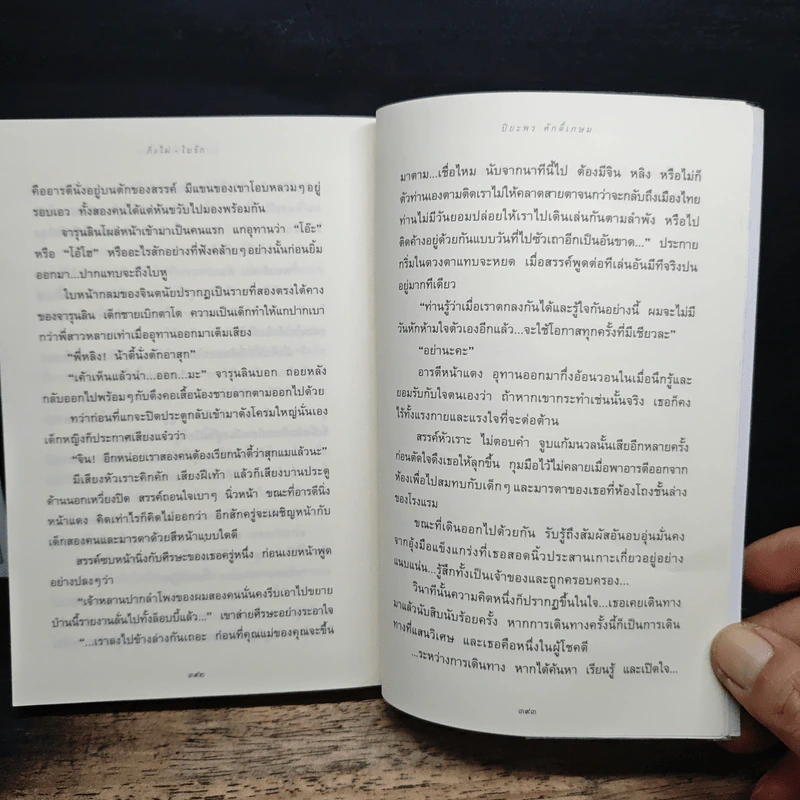 กิ่งไผ่ - ใบรัก
คืออารตีนั่งอยู่บนตักของสรรค์ มีแขนของเขาโอบหลวมๆ อยู่
รอบเอว ทั้งสองคนได้แต่หันขวับไปมองพร้อมกัน
จารุนลินโผล่หน้าเข้ามาเป็นคนแรก แกอุทานว่า “โอ๊ะ”
หรือ “โอ้โฮ” หรืออะไรสักอย่างที่ฟังคล้ายๆ อย่างนั้นก่อนยิ้ม
ออกมา...ปากแทบจะถึงใบหู
ใบหน้ากลมของจินตนัยปรากฏเป็นรายที่สองตรงใต้คาง
ของจารุนลิน เด็กชายเบิกตาโต ความเป็นเด็กทำให้แกปากเบา
กว่าพี่สาวหลายเท่าเมื่ออุทานออกมาเต็มเสียง
“พี่หลิง! น้าตี้นั่งตักอาสุก”
“เค้าเห็นแล้วน่า...ออก...มะ” จารุนลินบอก ถอยหลัง
กลับออกไปพร้อมๆ กับดึงคอเสื้อน้องชายลากตามออกไปด้วย
ทว่าก่อนที่แกจะปิดประตูกลับเข้ามาดังโครมใหญ่นั่นเอง
เด็กหญิงก็ประกาศเสียงแจ๋วว่า
“จิน! อีกหน่อยเราสองคนต้องเรียกน้าตี้ว่าสุกแมแล้วนะ”
มีเสียงหัวเราะคิกคัก เสียงฝีเท้า แล้วก็เสียงบานประตู
ด้านนอกเหวี่ยงปิด สรรค์ถอนใจเบาๆ นิ่วหน้า ขณะที่อารตีนั่ง
หน้าแดง คิดเท่าไรก็คิดไม่ออกว่า อีกสักครู่จะเผชิญหน้ากับ
เด็กสองคนและมารดาด้วยสีหน้าแบบใดดี
สรรค์ซบหน้านิ่งกับศีรษะของเธอครู่หนึ่ง ก่อนเงยหน้าพูด
อย่างปลงๆ ว่า
“เจ้าหลานปากลำโพงของผมสองคนนั่นคงรีบเอาไปขยาย
ป่านนี้รายงานลั่นไปทั้งล็อบบี้แล้ว...” เขาส่ายศีรษะอย่างระอาใจ
“...เราลงไปข้างล่างกันเถอะ ก่อนที่คุณแม่ของคุณจะขึ้น
๓๙๒
ปิยะพร ศักดิ์เกษม
มาตาม...เชื่อไหม นับจากนาทีนี้ไป ต้องมีจิน หลิง หรือไม่ก็
ตัวท่านเองตามติดเราไม่ให้คลาดสายตาจนกว่าจะกลับถึงเมืองไทย
ท่านไม่มีวันยอมปล่อยให้เราไปเดินเล่นกันตามลำพัง หรือไป
ติดค้างอยู่ด้วยกันแบบวันที่ไปซัวเถาอีกเป็นอันขาด...” ประกาย
กริ่มในดวงตาแทบจะหยด เมื่อสรรค์พูดต่อทีเล่นอันมีทีจริงปน
อยู่มากทีเดียว
“ท่านรู้ว่าเมื่อเราตกลงกันได้และรู้ใจกันอย่างนี้ ผมจะไม่มี
วันหักห้ามใจตัวเองอีกแล้ว...จะใช้โอกาสทุกครั้งที่มีเชียวละ”
“อย่านะคะ”
อารตีหน้าแดง อุทานออกมากึ่งอ้อนวอนในเมื่อนึกรู้และ
ยอมรับกับใจตนเองว่า ถ้าหากเขากระทำเช่นนั้นจริง เธอก็คง
ไร้ทั้งแรงกายและแรงใจที่จะต่อต้าน
สรรค์หัวเราะ ไม่ตอบคำ จูบแก้มนวลนั้นเสียอีกหลายครั้ง
ก่อนตัดใจดึงเธอให้ลุกขึ้น กุมมือไว้ไม่คลายเมื่อพาอารตีออกจาก
ห้องเพื่อไปสมทบกับเด็กๆ และมารดาของเธอที่ห้องโถงชั้นล่าง
ของโรงแรม
ขณะที่เดินออกไปด้วยกัน รับรู้ถึงสัมผัสอันอบอุ่นมั่นคง
จากอุ้งมือแข็งแกร่งที่เธอสอดนิ้วประสานเกาะเกี่ยวอยู่อย่าง
แนบแน่น...รู้สึกทั้งเป็นเจ้าของและถูกครอบครอง...
วินาทีนั้นความคิดหนึ่งก็ปรากฏขึ้นในใจ...เธอเคยเดินทาง
มาแล้วนับสิบนับร้อยครั้ง หากการเดินทางครั้งนี้ก็เป็นการเดิน
ทางที่แสนวิเศษ และเธอคือหนึ่งในผู้โชคดี
...ระหว่างการเดินทาง หากได้ค้นหา เรียนรู้ และเปิดใจ...
๓๙๓